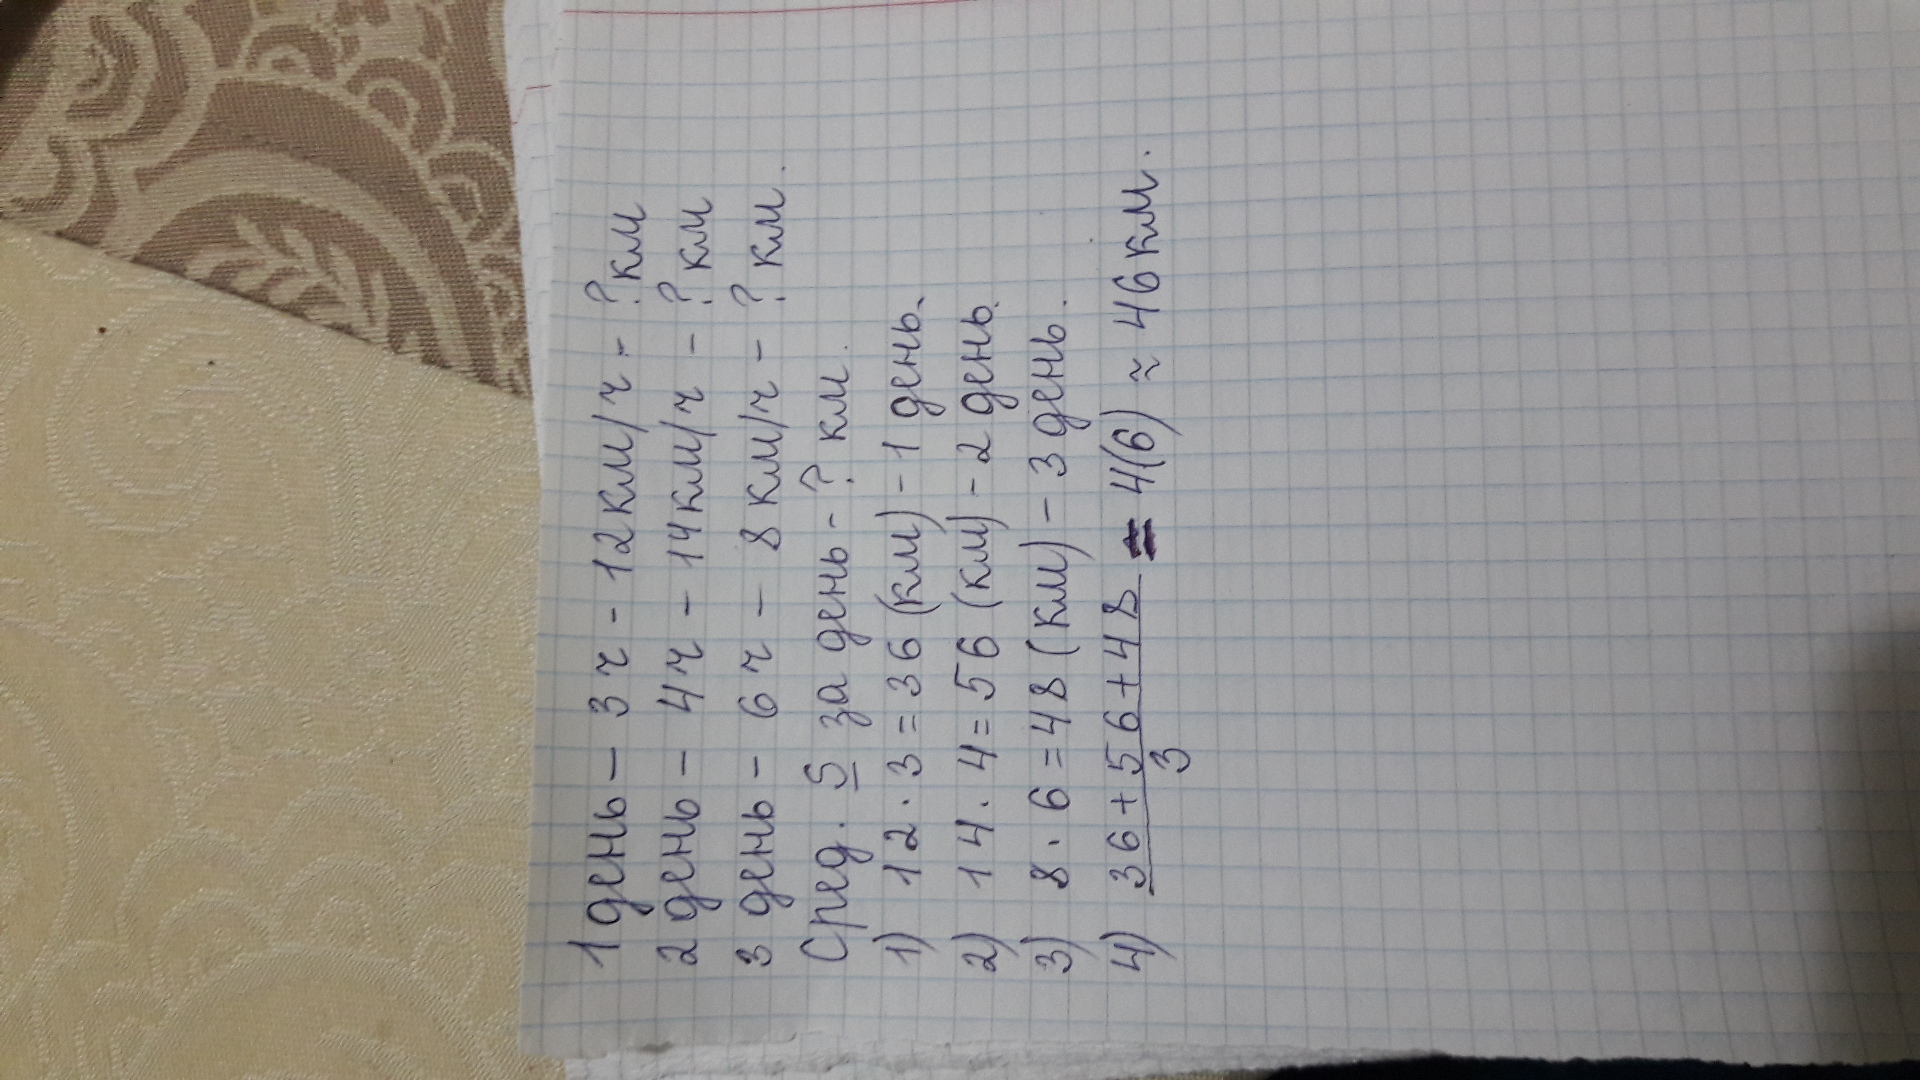 1 день - 3 ч - 12 км/ч - ? км
2 день - 4ч - 14км/ч - ? км
3 день - 6 ч - 8 км/ч - ? км.
Сред. S за день - ? км.
1) 12 · 3 = 36 (км) - 1 день.
2) 14 · 4 = 56 (км) - 2 день.
3) 8 · 6 = 48 (км) - 3 день.
4) 36 + 56 + 48 = 4(6) ≈ 46 км.
3